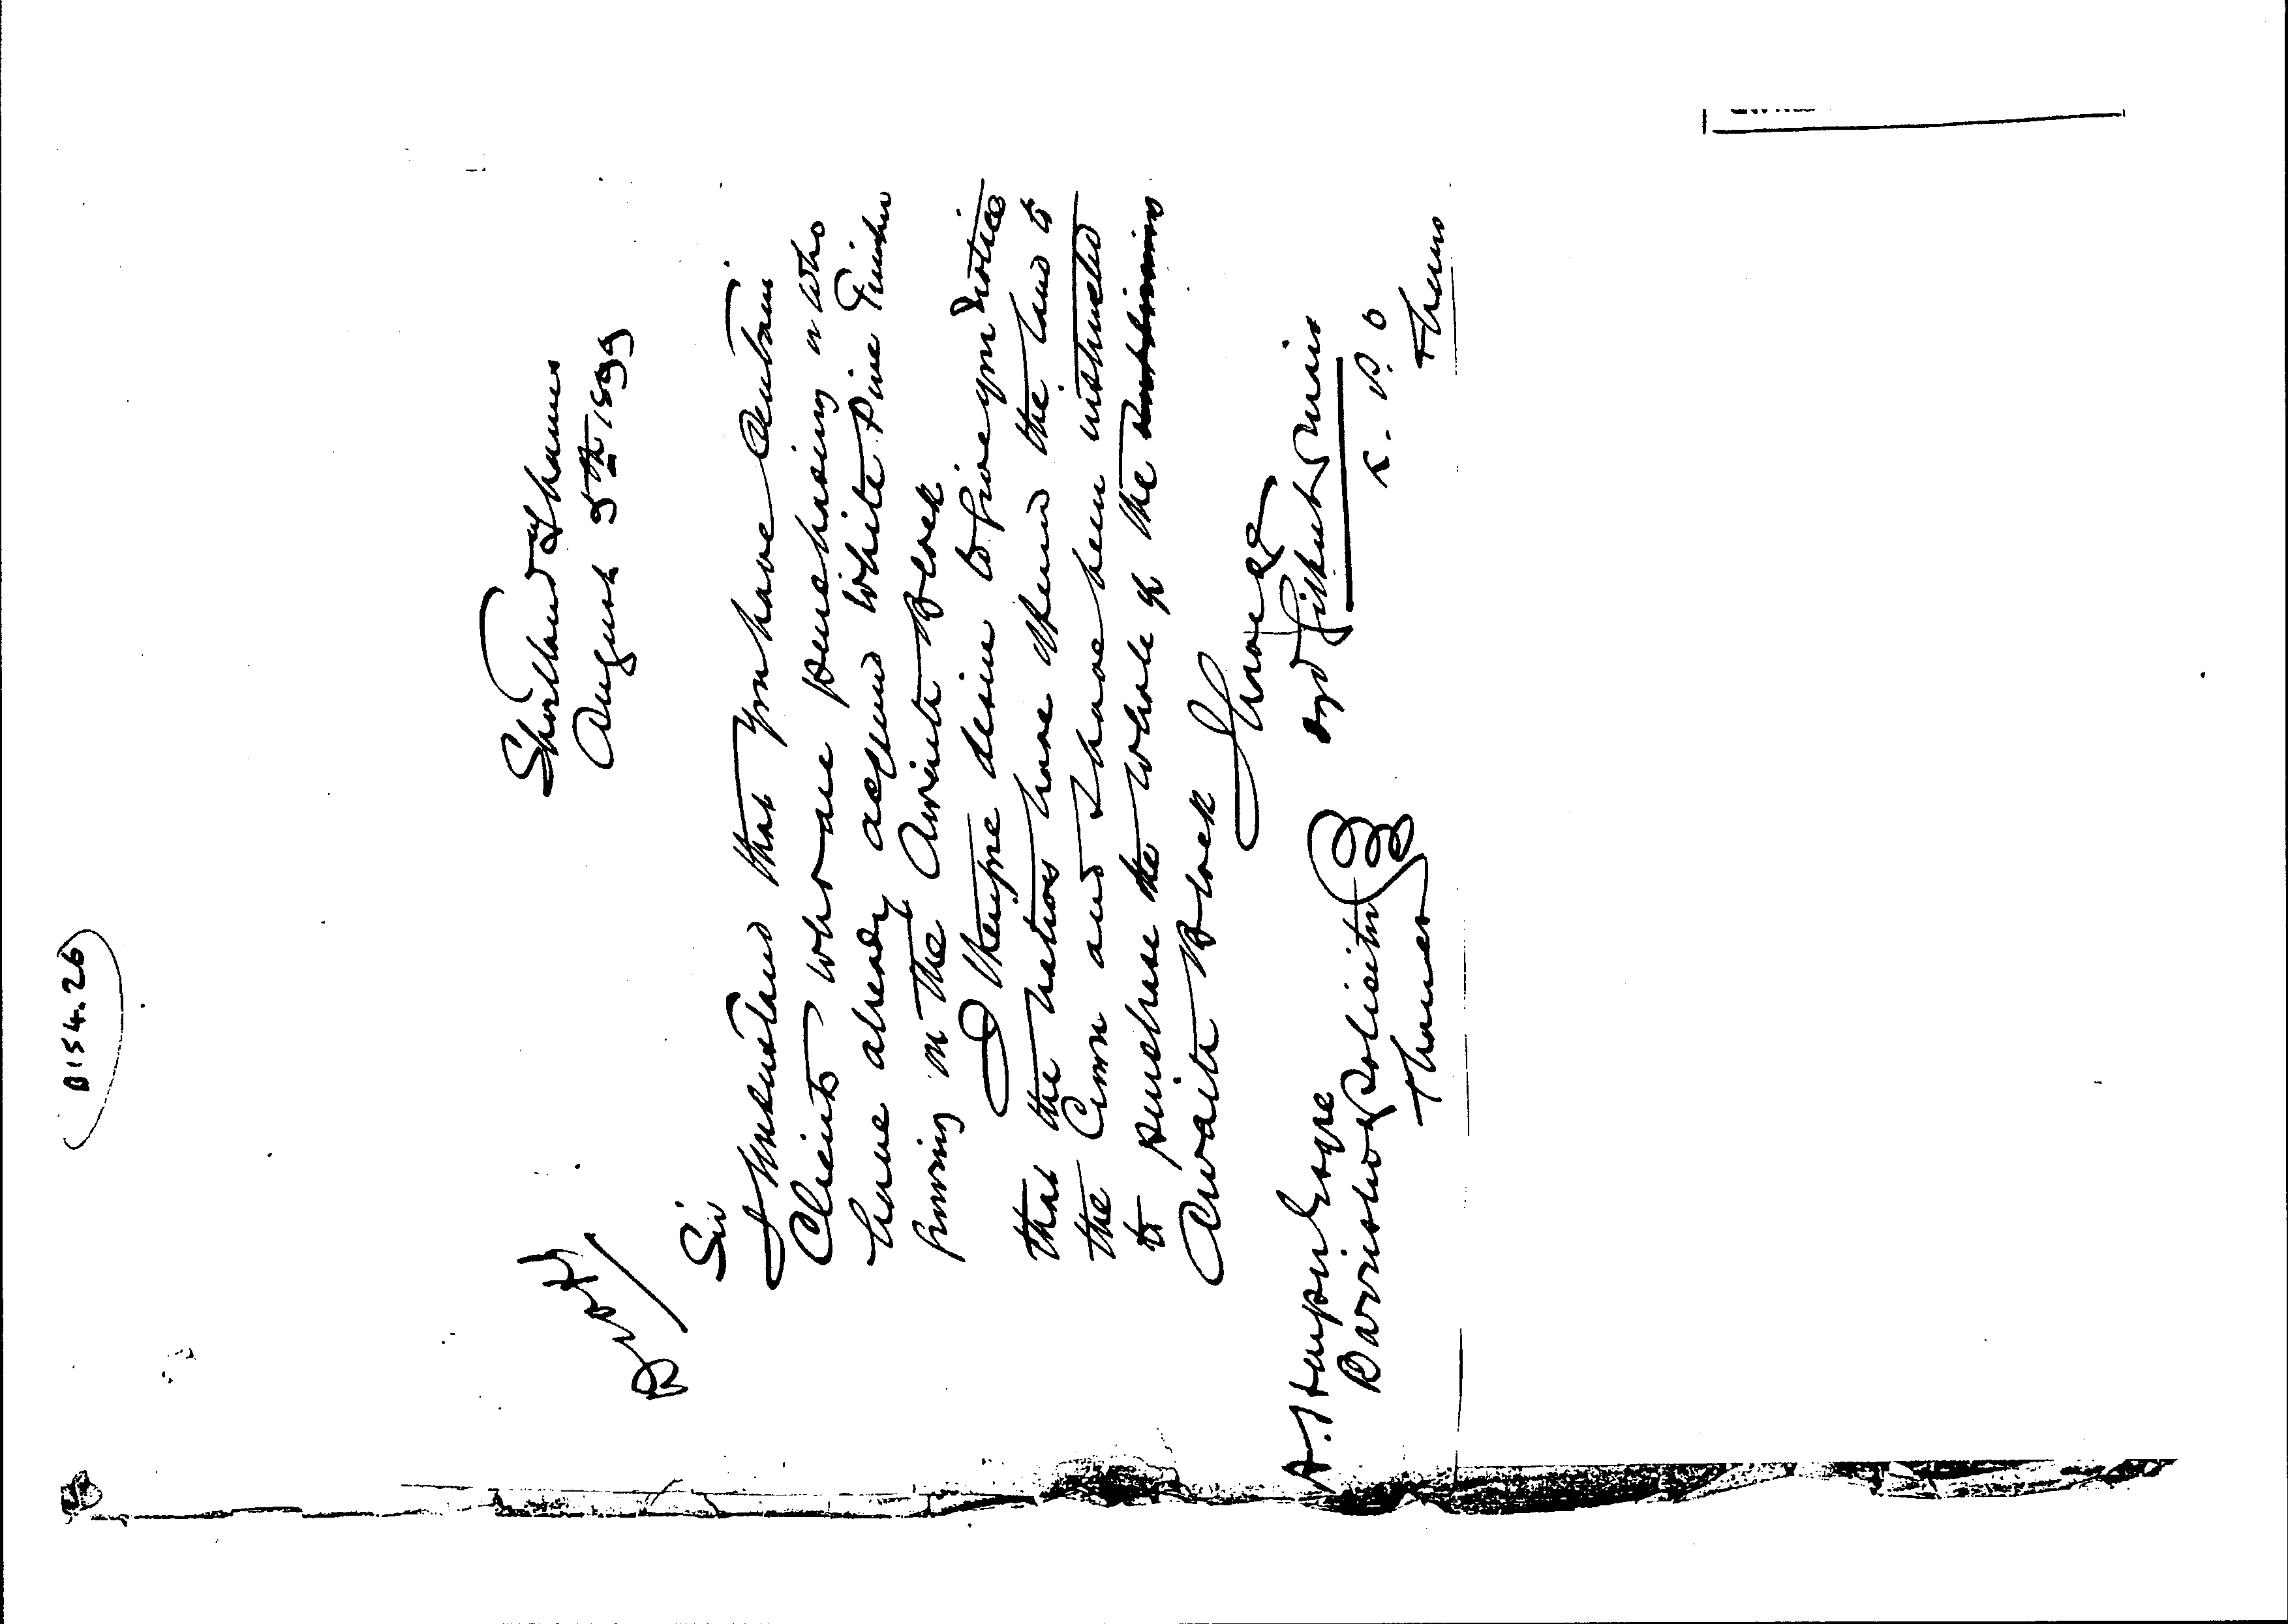 D154.26
Copy
Shortland Thames
August 5th 1899
Sir
I understand that you have certain
Clients who are purchasing or who
have already acquired White Pine Timber
growing on the Awaiti Block
I therefore desire to give you notice
that the natives have offered the land to
the Crown and I have been instructed
to purchase the whole of the
Awaiti Block
sgd Gilbert Mair
L. P. O
Thames
A. Barrister & Solicitor
Thames